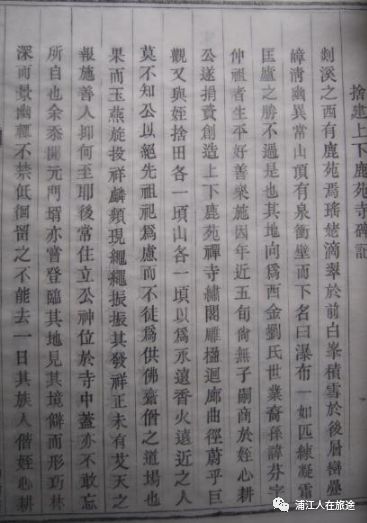 捨建上下鹿苑寺碑記
剡溪之西有鹿苑焉瑤莛滴翠於前白峯積雪於後層巒疊
嶂清幽異常山頂有泉衝壁而下名曰瀑布一如匹練凝雪
匡廬之勝不過是也其地向爲西金劉氏世業裔孫諱芬字
仲祖者生平好善樂施因年近五旬尚無子嗣商於姪心耕
公遂捐貲創造上下鹿苑禪寺繡閣雕楹迴廊曲徑蔚乎巨
觀又與姪捨田各一頃山各一頃以爲永遠香火遠近之人
莫不知公以絕先祖祀爲慮而不徒爲供佛齋僧之道場也
果而玉燕旋投祥麟頻現繩繩振振其發祥正未有艾天之
報施善人抑何至耶後常住立公神位於寺中蓋亦不敢忘
所自也余忝開元門壻亦嘗登臨其地見其境僻而形巧林
深而景幽輒不禁低徊留之不能去一日其族人偕姪心耕
浦江人在旅途